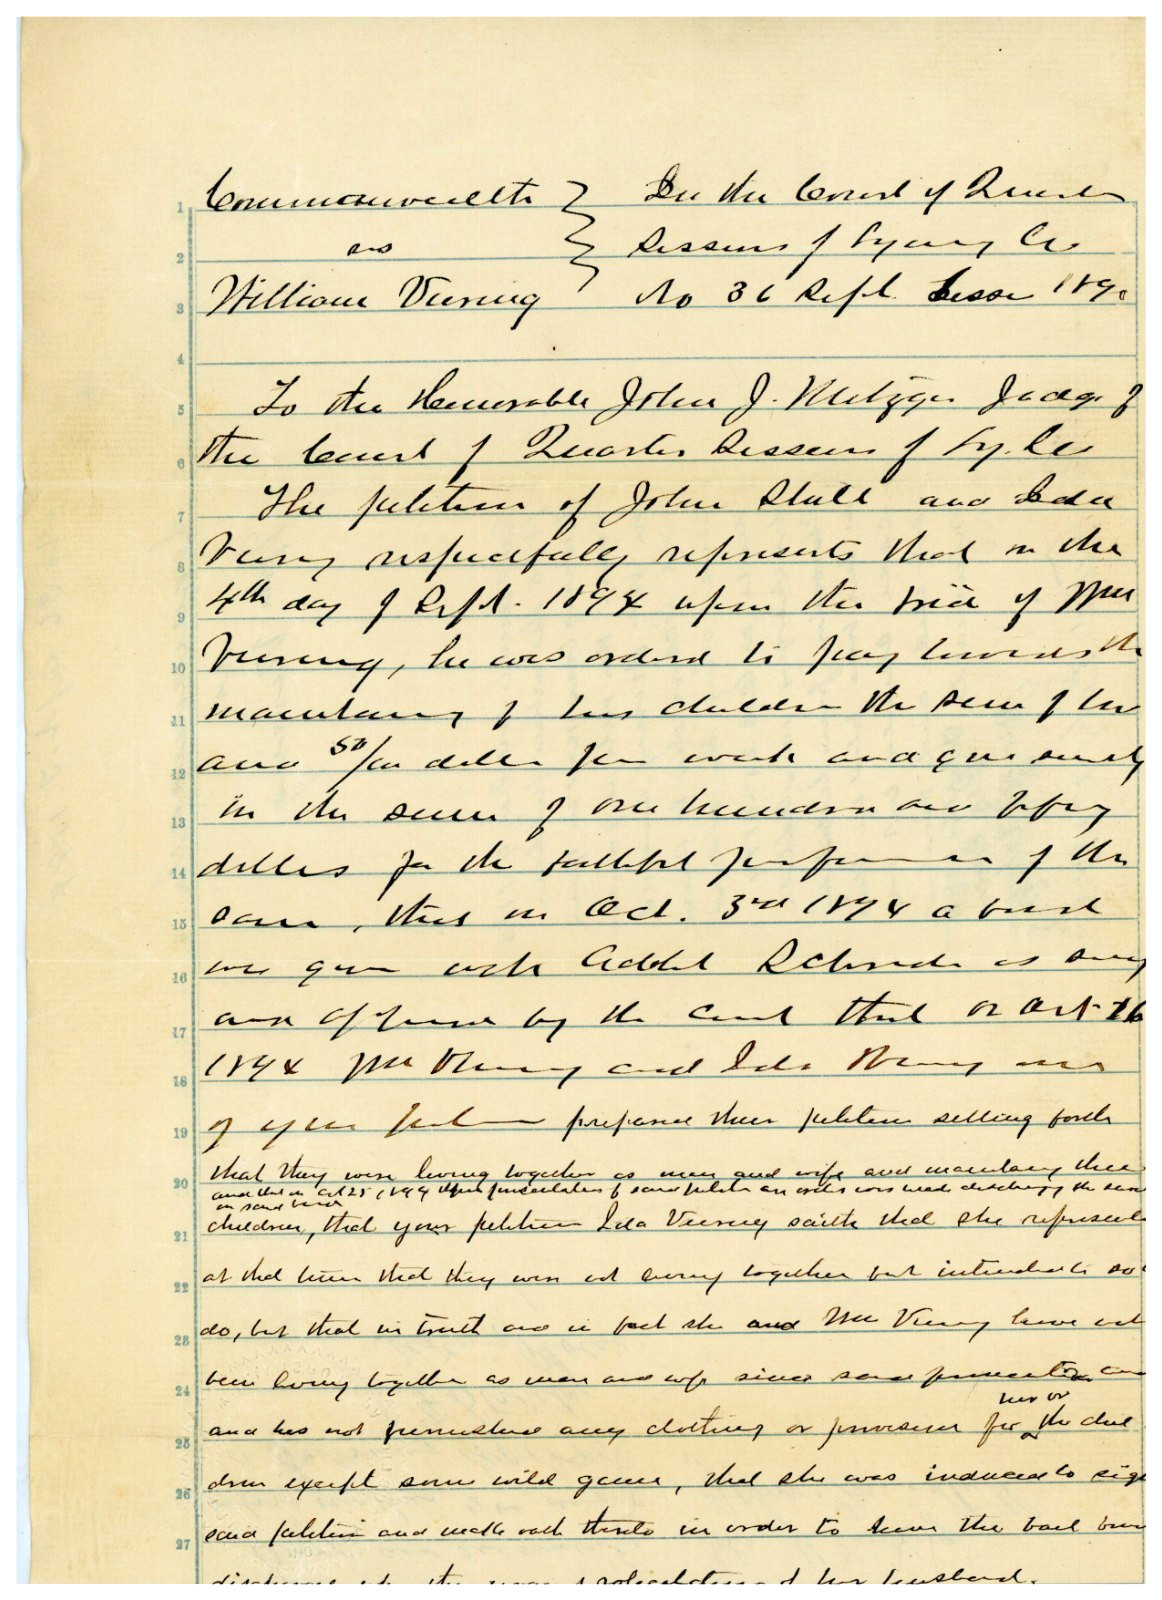 1 Commonwealth In the Court of Quarter
2 vs Sessions of Lycoming Co
3 William Viering No 36 Sept. Sess 189
4
5 To the Honorable John J. Metzger Judge of
6 the Court of Quarter Sessions of Ly. Co
7 The petition of John Stull and Ida
8 Viering respectfully represents that on the
9 4th day of Sept. 1894 upon the trial of Wm
10 Viering, he was ordered to pay towards the
11 maintaining of his children the sum of two
12 and 50/100 dollars per week and give surety
13 in the sum of one hundred and fifty
14 dollars for the faithful performance of the
15 same, that on Oct. 3rd 1894 a bond
16 was given with Schrade as surety
17 and approved by the court that on Oct 26
18 1894 Wm Viering and Ida Viering one
19 of your petitioners prepared their petition setting forth
20 that they were living together as man and wife and maintaining their
and that on Oct 25, 1894 upon presentation of said petition an order was made discharging the
on said bond
21 children, that your petitioner Ida Viering saith that she represented
22 at that time that they were not living together but intended to so
23 do, but that in truth and in fact she and Wm Viering have not
24 been living together as man and wife since said
her or
25 and has not furnished any clothing or provisions for the chil
26 dren except some wild game, that she was induced to sign
27 said petition and make oath thereto in order to have the bail
discharged the of her husband.